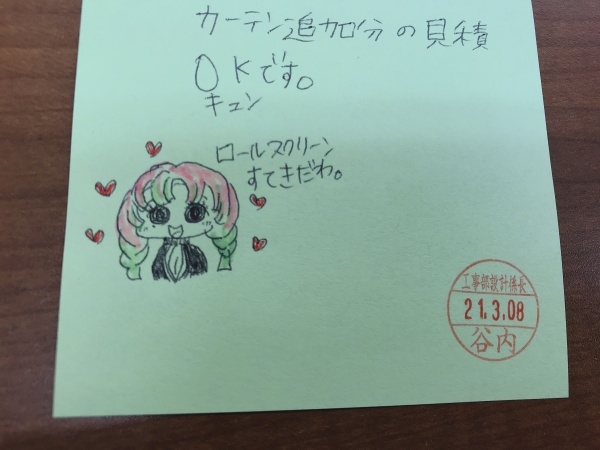 カーテン追加分の見積
OKです。
キュン
ロールスクリーン
すてきだわ。
工事部設計係長
21.3.08
谷内